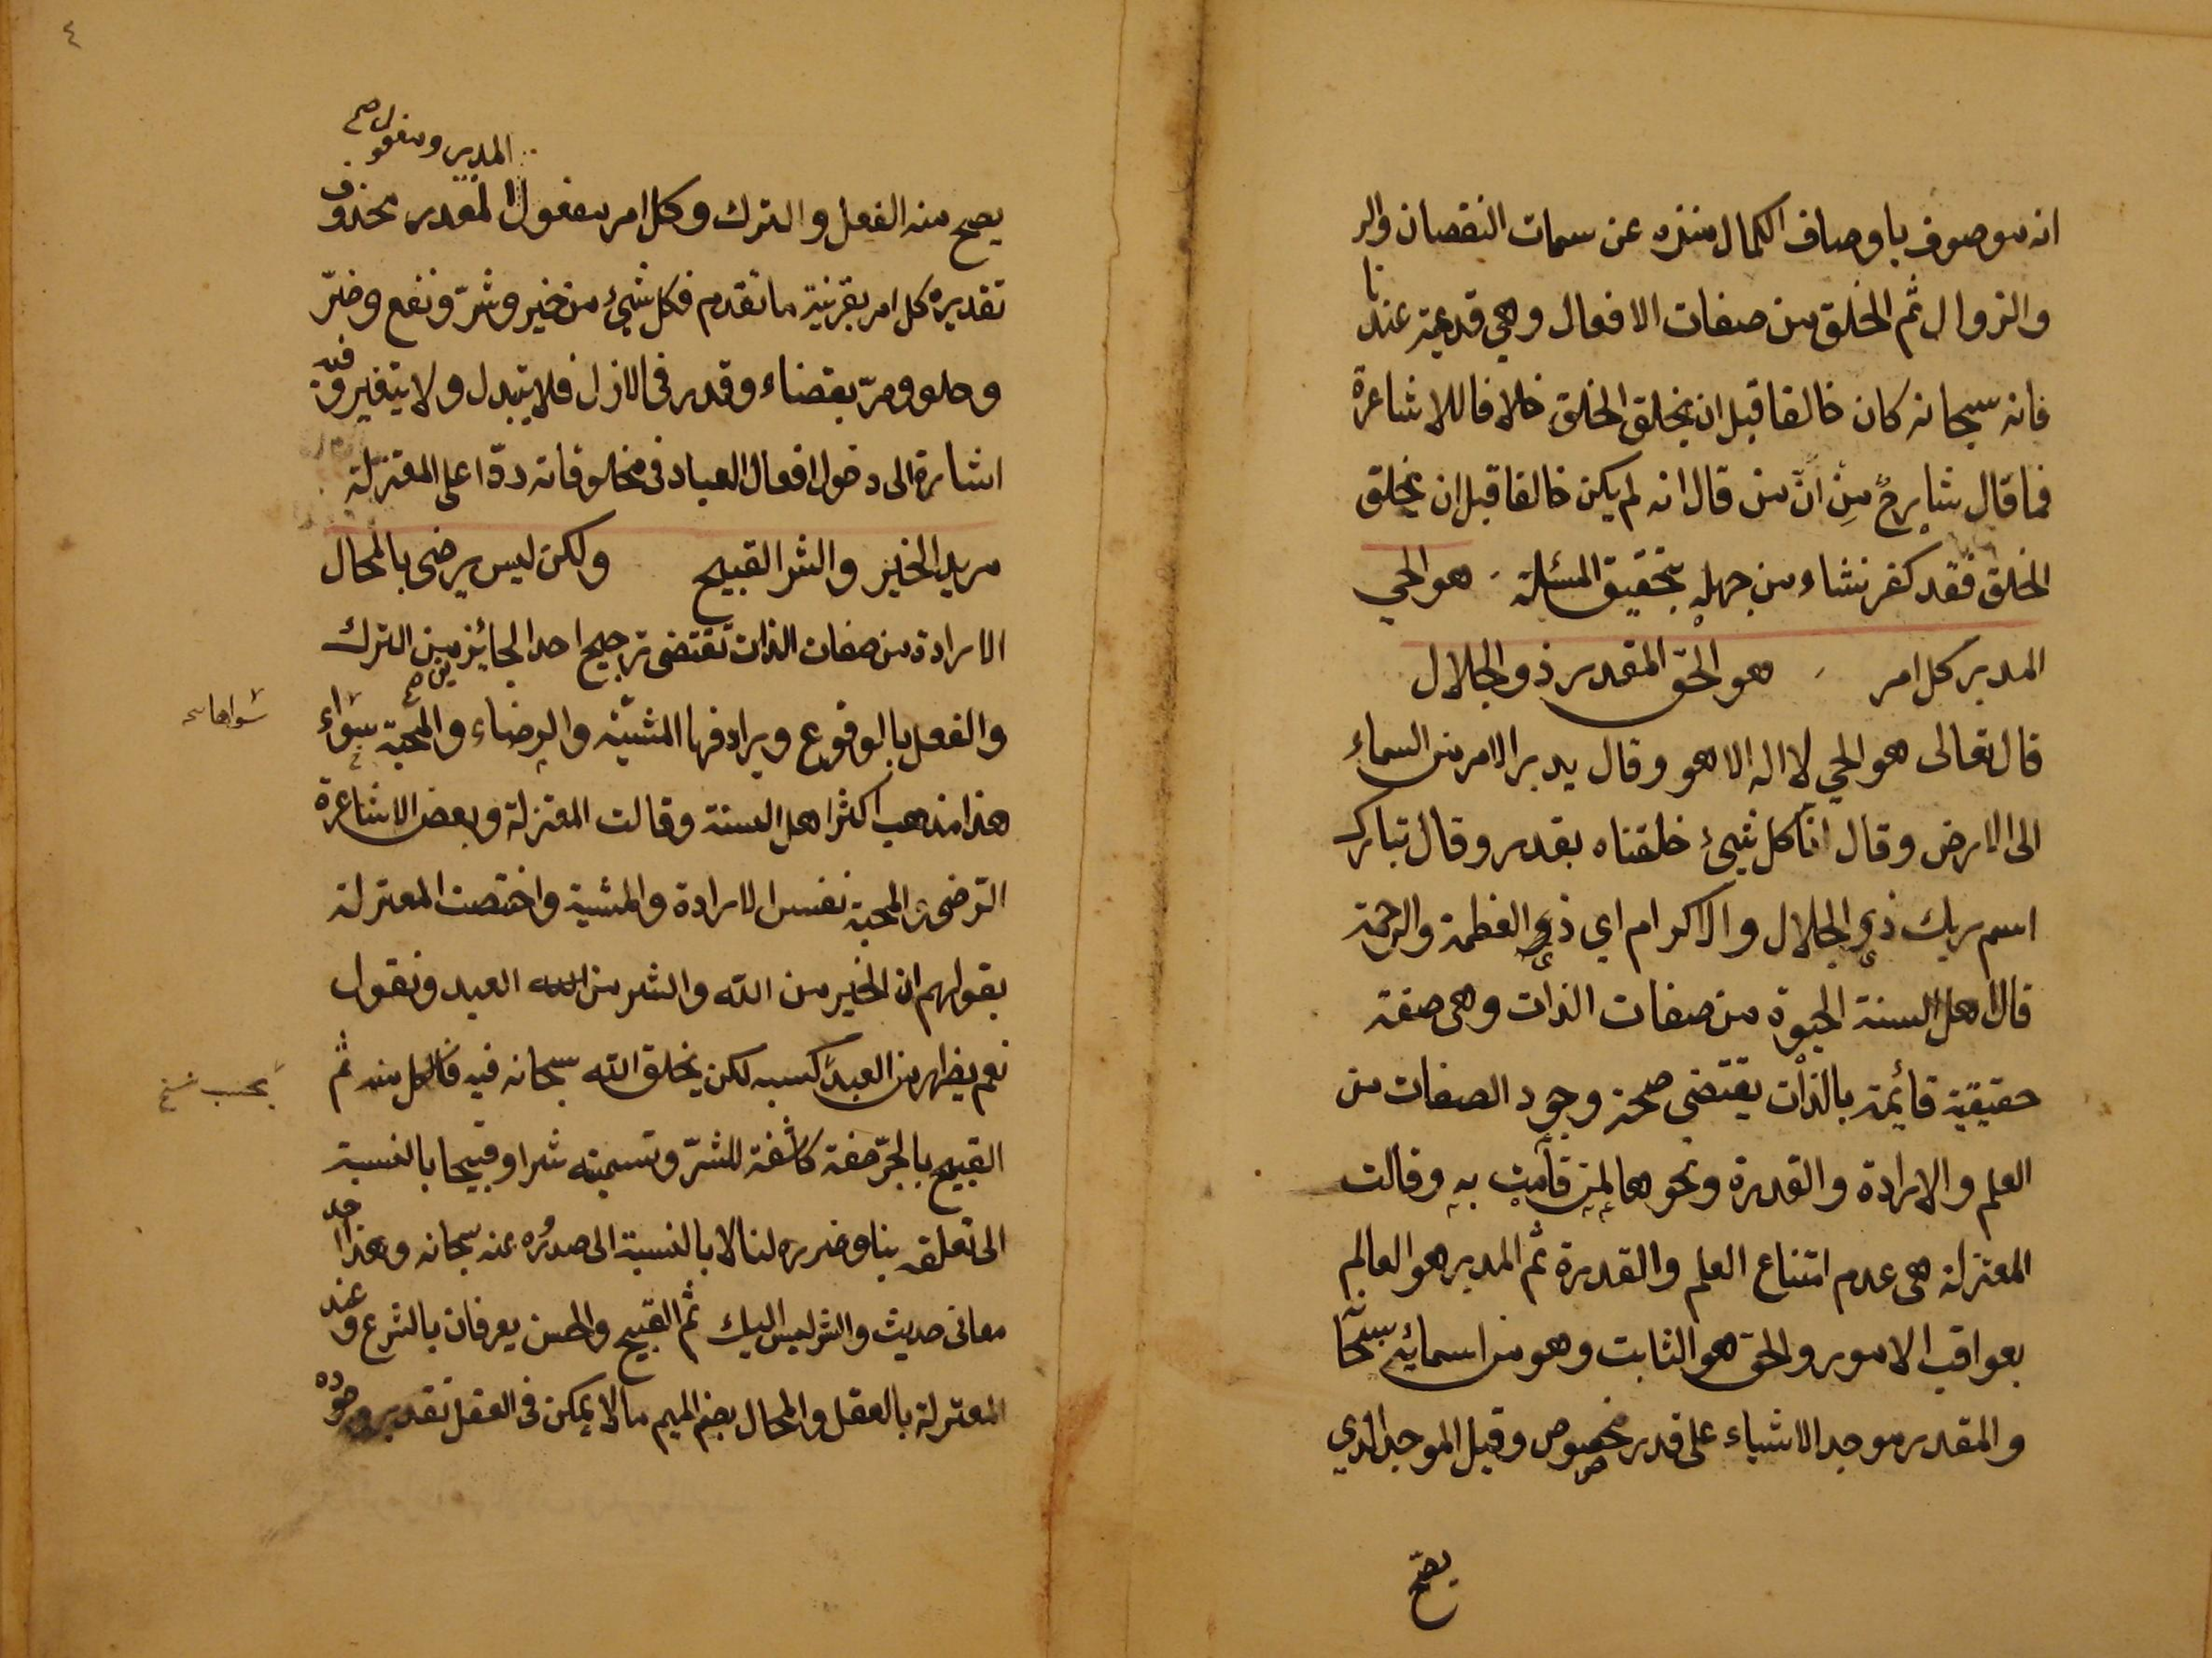 انه موصوف باوصاف الكمال منزه عن سمات النقصان والز
والزوال ثم الخلق من صفات الافعال وهي قديمة عندنا
فانه سبحانه كان خالقا قبل ان يخلق الخلق خلافا للاشاعرة
فما قال شارحٌ مِن انّ من قال انه لم يكن خالقا قبل ان يخلق
الخلق فقد كفر نشاء من جهله بتحقيق المسئلة هو الحي
المدبر كل امر هو الحق المقدر ذو الجلال
قال تعالى هو الحي لا اله الا هو وقال يدبر الامر من السماء
الى الارض وقال انّا كل شيئ خلقناه بقدر وقال تبارك
اسم ربك ذي الجلال والاكرام اي ذي العظمة والرحمة
قال اهل السنة الحيوة من صفات الذات وهي صفة
حقيقية قائمة بالذات يقتضي صحة وجود الصفات من
العلم والارادة والقدرة ونحوها لمن قامت به وقالت
المعتزلة هي عدم امتناع العلم والقدرة ثم المدبر هو العالم
بعواقب الامور والحق هو الثابت وهو من اسمائه سبحانه
والمقدر موجد الاشياء على قدر مخصوص وقيل الموجد الذي
يصح
٤
المدبر ومفعول صح
يصح منه الفعل والترك وكل امر مفعول المقدر محذوف
تقديره كل امر بقرينة ما تقدم فكل شيئ من خير وشرّ ونفع وضرّ
وحلو ومرّ بقضاء وقدر في الازل فلا يتبدل ولا يتغير وفيه
اشارة الى دخول افعال العباد في مخلوقاته ردّا على المعتزلة
مريد الخير والشر القبيح ولكن ليس يرضى بالمحال
الارادة من صفات الذات تقتضي ترجيح احد الجائزين من الترك
والفعل بالوقوع ويرادفها المشيّة والرضاء والمحبة سواء
هذا مذهب اكثر اهل السنة وقالت المعتزلة وبعض الاشاعرة
الرّضى والمحبة نفس الارادة والمشية واختصت المعتزلة
بقولهم ان الخير من الله والشر من الله العبد ونقول
نعم يظهر من العبد كسبه لكن يخلق الله سبحانه فيه فالكل منه ثم
بحسب نسخ
القبيح بالجرّ صفة كاشفة للشرّ وتسميته شرا وقبيحا بالنسبة
الى تعلقه بنا وضرره لنا لا بالنسبة الى صدوره عنه سبحانه وهذا احد
معاني حديث والشر ليس اليك ثم القبيح والحسن يعرفان بالشرع وعند
المعتزلة بالعقل والمحال بضم الميم ما لا يمكن في العقل تقدير وجوده